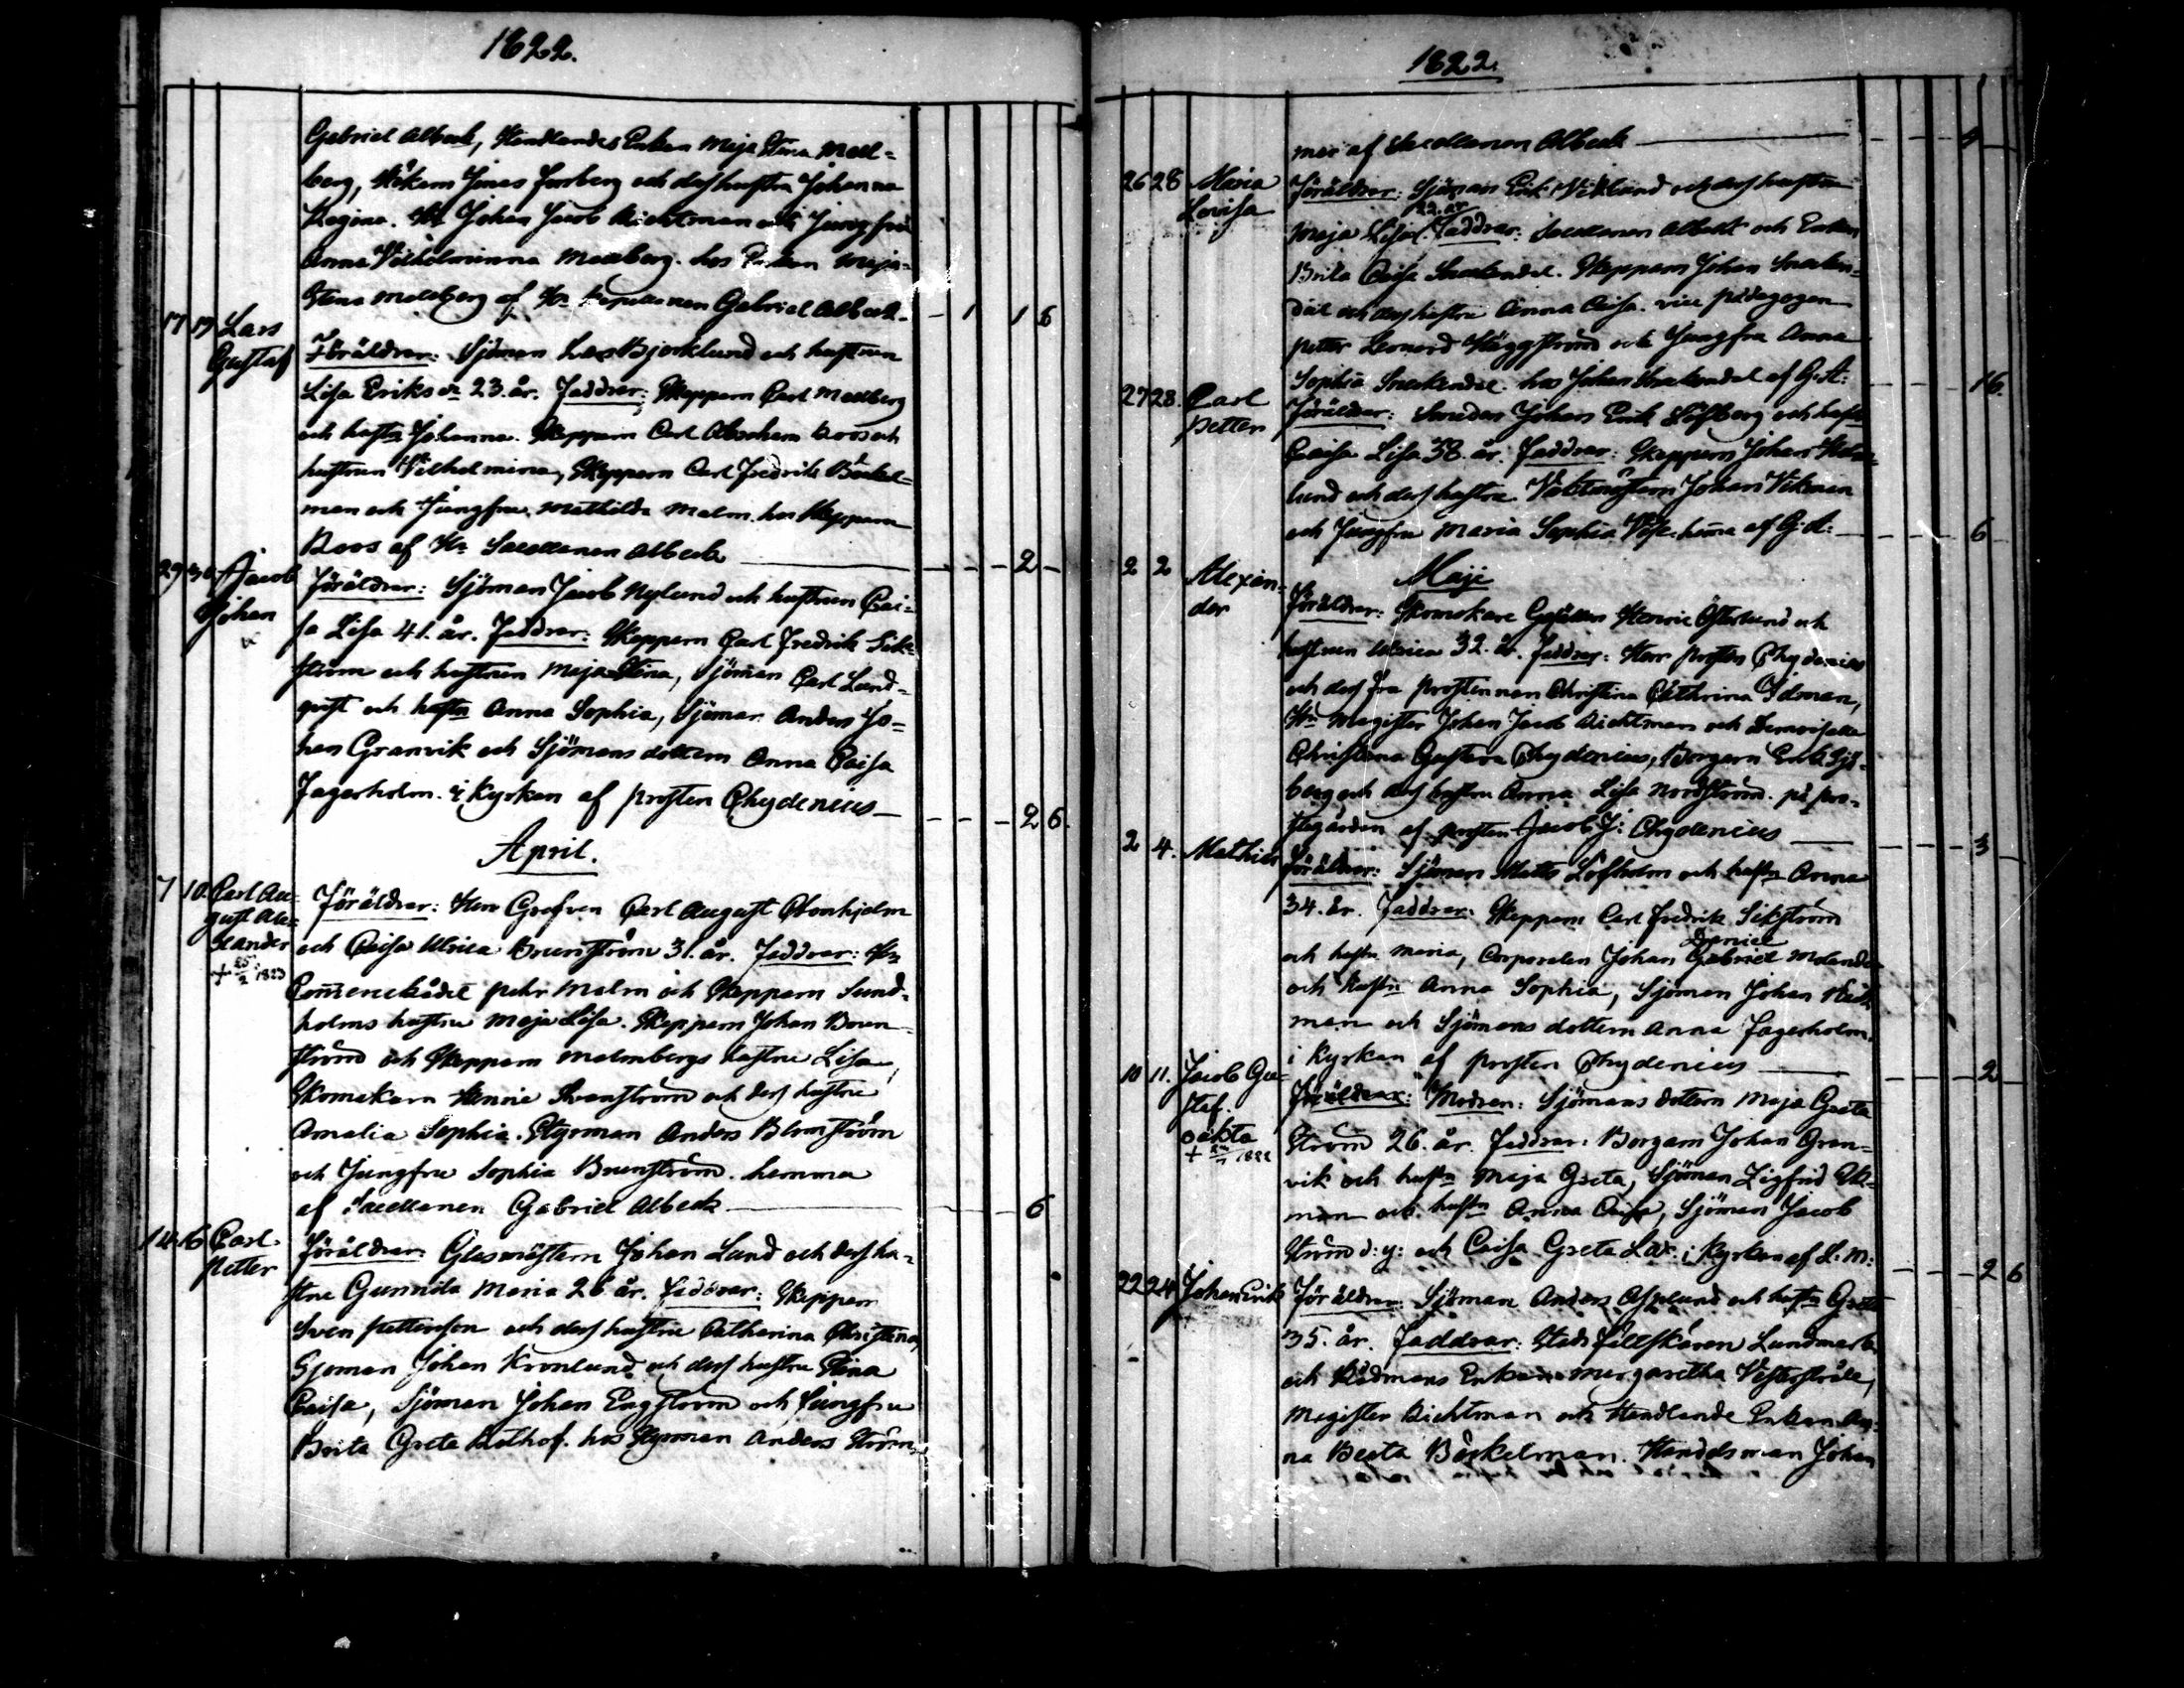 1822.
Gabriel Albeck, Handlandes Enkan Maja Stina Mell=
berg, Jonas Forsberg och dess hustru Johanna
Regina. Hr Johan Jacob Aichtman och Jungfru
Anna Vilhelmina Mellberg. hos Enkan Maja
Stina Mellberg af Hr Capellanen Gabriel Albeck. - 1 1 6
17 19 Lars
Gustaf
Föräldrar: Sjöman Lars Bjorklund och hustrun
Lisa Eriksdr 23. år. Faddrar: Skeppern Carl Mellberg
och hustr Johanna. Skeppern Carl Abraham Roos och
hustrun Vilhelmina, Skeppern Carl Fredrik Böckel=
man och Jungfru Mathilda Malm. hos Skeppern
Roos af Hr Sacellanen Albeck - - - 2 -
29 30 Jacob
Johan
Föräldrar: Sjöman Jacob Nylund och hustrun Cai=
sa Lisa 41. år. Faddrar: Skeppern Carl Fredrik Sik=
ström och hustrun Maja Stina, Sjöman Carl Lund=
qvist och hustr Anna Sophia, Sjöman Anders Jo=
han Granvik och Sjömans dottern Anna Caisa
Fagerholm. i Kyrkan af Prosten Chydenius - - - 2 6.
April.
7 10. Carl Au=
gust Ale=
xander
+ 25/2 1823
Föräldrar: Herr Grefven Carl August Cronhjelm
och Caisa Ulrica Brunström 31. år. Faddrar: Hr
Commerserådet Pehr Malm och Skeppern Sund=
holms hustru Maja Lisa. Skeppern Johan Brun=
ström och Skeppern Malmbergs hustru Lisa,
Skomakarn Henric Svanström och dess hustru
Amalia Sophia. Styrman Anders Blomström
och Jungfru Sophia Brunström. hemma
af Sacellanen Gabriel Albeck - - 6
14 16 Carl
Petter
Föräldrar: Glasmästern Johan Lund och dess hu=
stru Gunnila Maria 26 år. Faddrar: Skeppar
Sven Petterson och dess hustru Catharina Christina,
Sjoman Johan Kronlund och dess hustru Stina
Caisa, Sjöman Johan Engstrom och Jungfru
Brita Greta Rothof. hos Styrman Anders Ström=
1822.
mer af Sacellanen Albeck - - - 4 -
26 28 Maria
Lovisa
Föräldrar: Sjöman Erik Viklund och dess hustru
22. år
Maja Lisa. Faddrar: Sacellanen Albeck och Enkan
Brita Caisa Snackendal. Skeppern Johan Snacken=
dal och dess hustru Anna Caisa. vice Pädagogen
Petter Leonard Häggström och Jungfru Anna
Sophia Snackendal. hos Johan Snackendal af G. A: - - - 16.
27 28. Carl
Petter
Föräldrar: Smeden Johan Erik Löfberg och hustr
Caisa Lisa 38. år. Faddrar: Skeppern Johan Holm=
lund och dess hustru. Vaktmästern Johan Vikman
och Jungfru Maria Sophia hemma af G. A: - - - 6
Maji
2 2 Alexan=
der
Föräldrar: Skomakare Gesällen Henric Österlund och
hustrun Ulrica 32. år. Faddrar: Herr Prosten Chydenius
och dess fru Prostinnan Christina Cathrina Idman,
Hr Magister Johan Jacob Aichtman och Demoiselle
Christina Gustava Chydenius, Borgarn Erik Sjö=
berg och dess hustru Anna Lisa Nordström. på Pro=
stegården af Prosten Jacob J: Chydenius - - - 3 -
2 4. Mathias
Föräldrar: Sjöman Matts Löfholm och hustr Anna
34. år. Faddrar: Skeppern Carl Fredrik Sikström
Daniel
och hustr Maria, Corporalen Johan Gabriel Molander
och hustr Anna Sophia, Sjöman Johan
man och Sjömans dottern Anna Fagerholm.
i Kyrkan af Prosten Chydenius - - - 2 -
10 11. Jacob Gu=
staf.
oäkta
+ 1822
Föräldrar: Modren: Sjömans dottern Maja Greta
Ström 26. år. Faddrar: Borgarn Johan Gran=
vik och hustr Maja Greta, Sjöman Zigfrid Ek=
man och hustr Anna Caisa, Sjöman Jacob
Ström d: y: och Caisa Greta Lax. i Kyrkan af L: M: - - - 2 6
22 24 Johan Erik
Föräldrar: Sjöman Anders Asplund och hustr Greta
35. år. Faddrar: Stads Fältskären Lundmark
och Rådmans Enkan Margaretha Vesterstråle,
Magister Aichtman och Handlande Enkan An=
na Beata Böckelman. Handelsman Johan